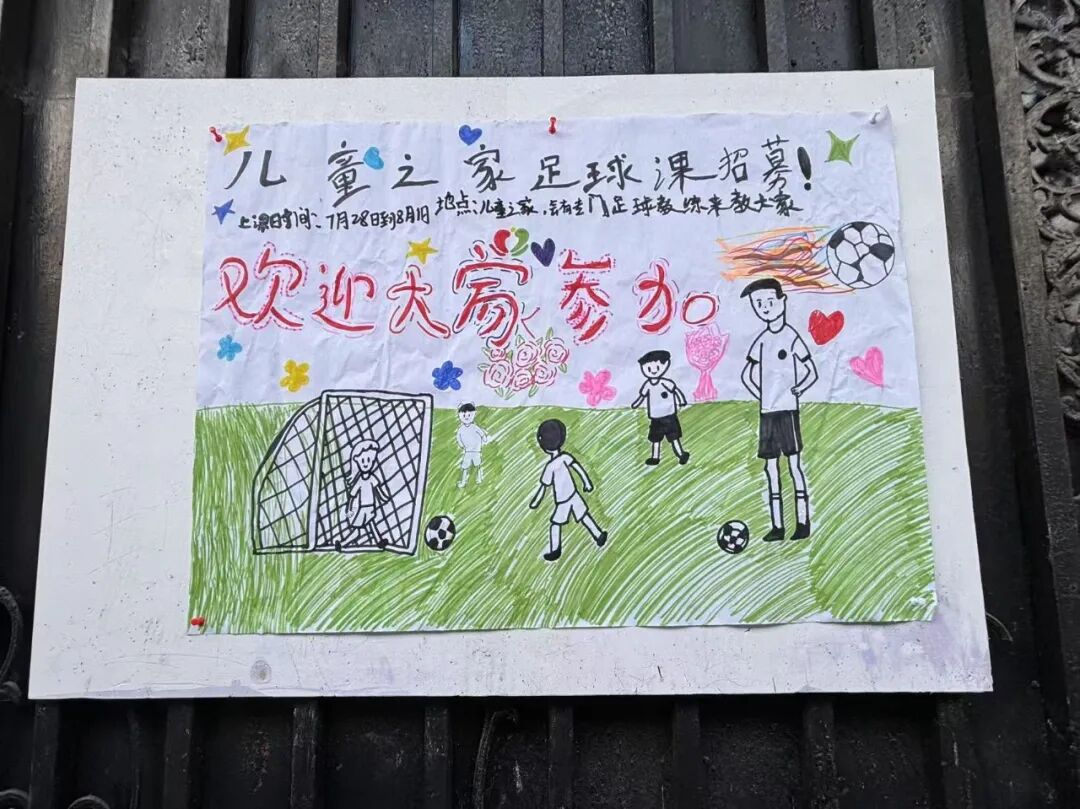 儿童之家足球课招募!
上课时间:7月28日到8月1日 地点:儿童之家,会有专门足球教练来教大家
欢迎大家参加